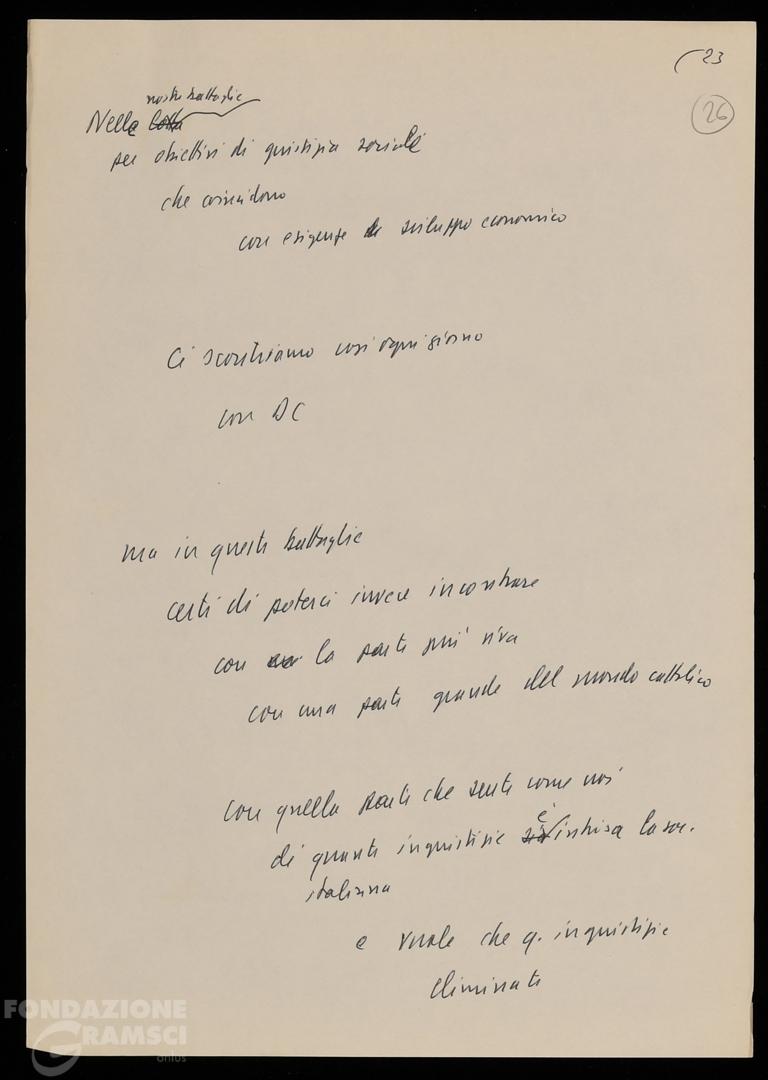 23
26
nostre battaglie
Nelle lotta
per obiettivi di giustizia sociale
che coincidono
con esigenze di sviluppo economico
Ci scontriamo così ogni giorno
con DC
ma in queste battaglie
certi di poterci invece incontrare
con la parte più viva
con una parte grande del mondo cattolico
con quella parte che sente come noi
di quante ingiustizie è intrisa la soc.
italiana
e vuole che q. ingiustizie
eliminate
FONDAZIONE
GRAMSCI
onlus